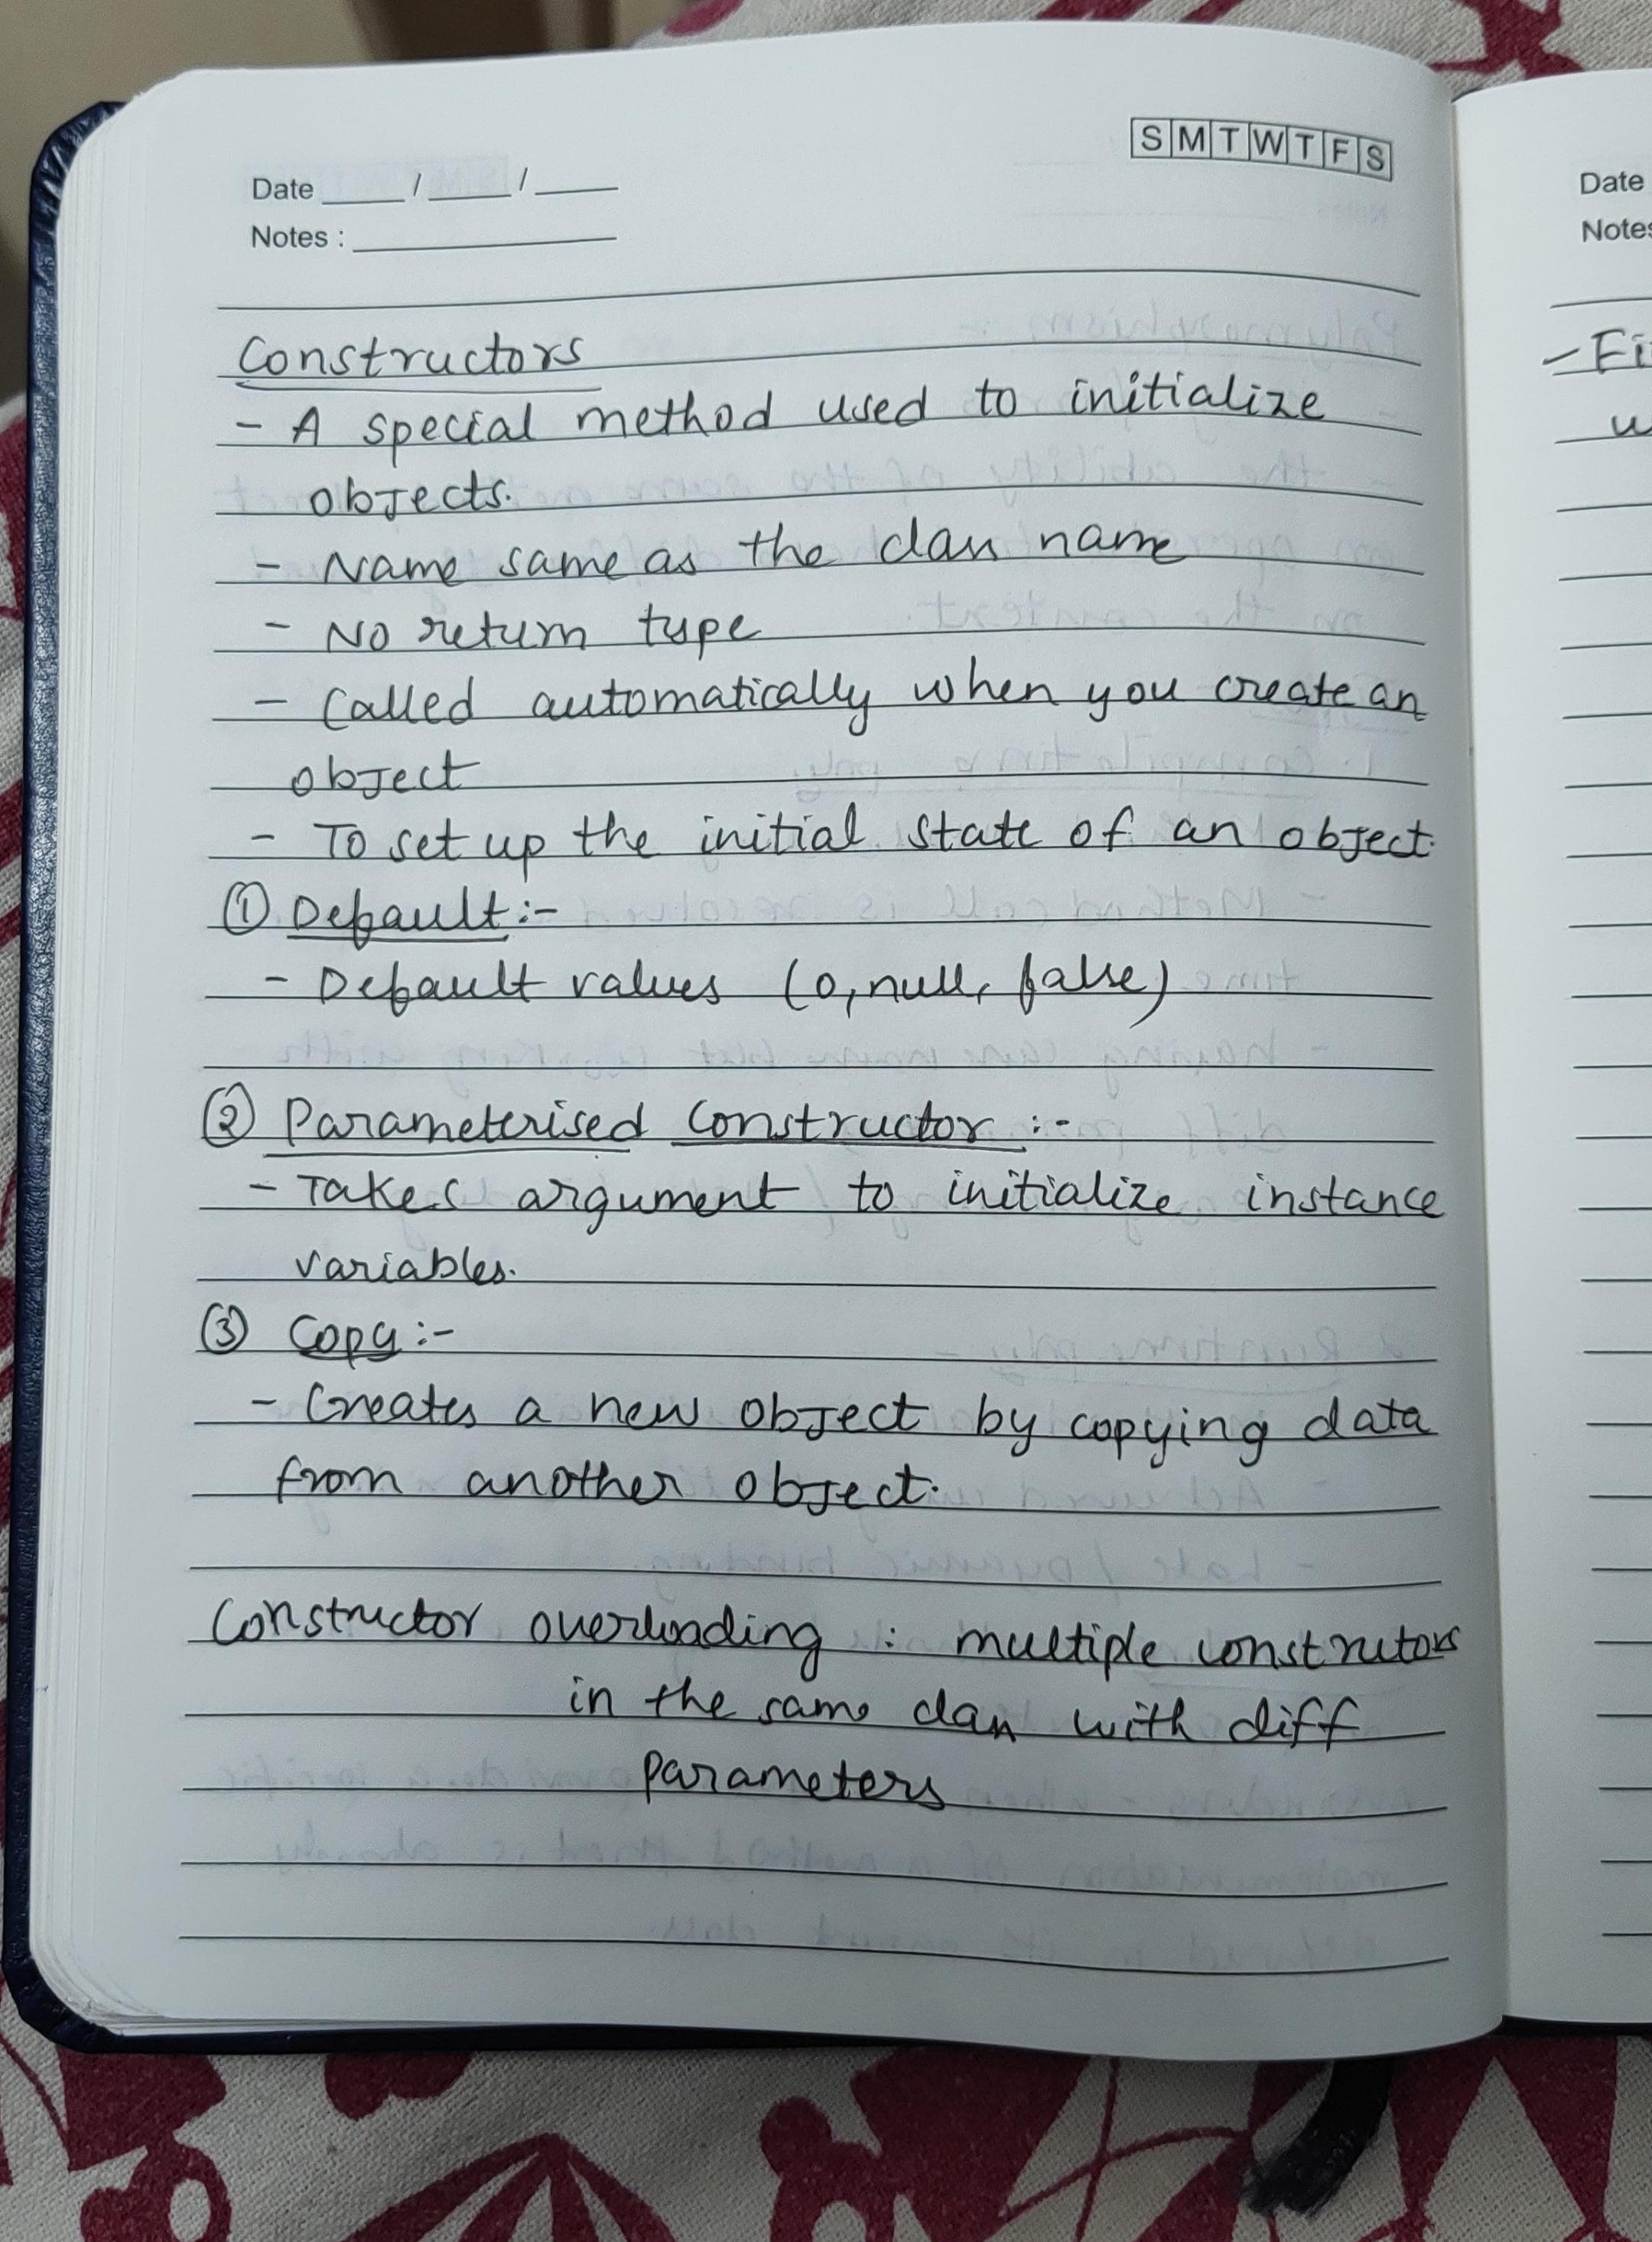 S M T W T F S
Date ____ / ____ / ____
Notes : ____
Constructors
- A special method used to initialize
objects.
- Name same as the class name
- No return type
- Called automatically when you create an
object
- To set up the initial state of an object.
① Default :-
- Default values (0, null, false)
② Parameterised Constructor :-
- Takes argument to initialize instance
variables.
③ Copy :-
- Creates a new object by copying data
from another object.
Constructor overloading : multiple construtors
in the same class with diff
parameters
Date
Notes
- Fi